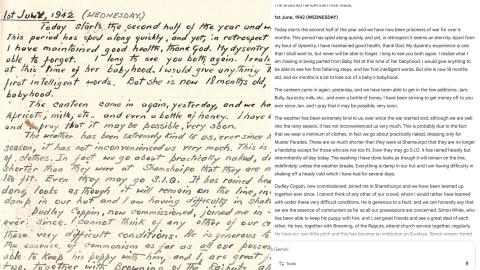 1st JUNE, 1942 (WEDNESDAY)
Today starts the second half of the year and
This period has sped along quickly, and yet, in retrospect
I have maintained good health, thank God. My dysentery
able to forget. I long to see you both again. I reali
at this time of her babyhood. I would give anything
first intelligent words. But she is now 18 months old,
babyhood.
The canteen came in again, yesterday, and we ha
Apricots, milk, etc. and even a bottle of honey. I have
and pray that it may be possible, very soon.
The weather has been extremely kind to us, ever since
season, it has not inconvenienced us very much. This is
of clothes. In fact we go about practically naked, dr
shorter than they were at Shamshuipo that they are n
too fit. Even they may go S.I.G. It has rained
dong looks as though it will remain on the line, in
damp in our hut and I am having difficulty in shak
Dudley Coppin, now commissioned, joined me in
ever since. I cannot think of any other of our
these very difficult conditions. He is generous to
the essence of communism as far as all our posses
able to keep his puppy with him, and I, are great
two, together with Browning of the Rajputs at
1st June, 1942 (WEDNESDAY)
Today starts the second half of the year and we have now been prisoners of war for over 6
months. This period has sped along quickly, and yet, in retrospect it seems an eternity. Apart from
my bout of dysentery, I have maintained good health, thank God. My dysentery experience is one
that I shall want to, but never will be able to forget. I long to see you both again. I realise what I
am missing in being parted from Baby Pat at this time of her babyhood. I would give anything to
be able to see her first faltering steps, and her first intelligent words. But she is now 18 months
old, and six months is a lot to lose out of a baby's babyhood.
The canteen came in again, yesterday, and we have been able to get in the few additions: Jam,
Bully, Apricots; milk, etc., and even a bottle of honey. I have been striving to get money off to you
ever since Jan. and I pray that it may be possible, very soon.
The weather has been extremely kind to us, ever since the war started and, although we are well
into the rainy season, it has not inconvenienced us very much. This is probably due to the fact
that we wear a minimum of clothes. In fact we go about practically naked, dressing only for
Muster Parades. These are so much shorter than they were at Shamshuipo that they are no longer
a hardship except for those who are not too fit. Even they may go S.I.G. It has rained heavily but
intermittently all day today. The washing I have done looks as though it will remain on the line,
indefinitely, unless the weather breaks. Everything is damp in our hut and I am having difficulty in
shaking off a heady cold which I have had for several days.
Dudley Coppin, now commissioned, joined me in Shamshuipo and we have been teamed up
together ever since. I cannot think of any other of our crowd, whom I would rather have teamed
with under these very difficult conditions. He is generous to a fault, and we can honestly say that
we are the essence of communism as far as all our possessions are concerned. Simon White, who
has been able to keep his puppy with him, and I, are great friends and see a great deal of each
other. He two, together with Browning, of the Rajputs, attend church service together, regularly.
He has our own little pitch and this has become an institution on Sundays. Simon remain bored
Gemini
Tools